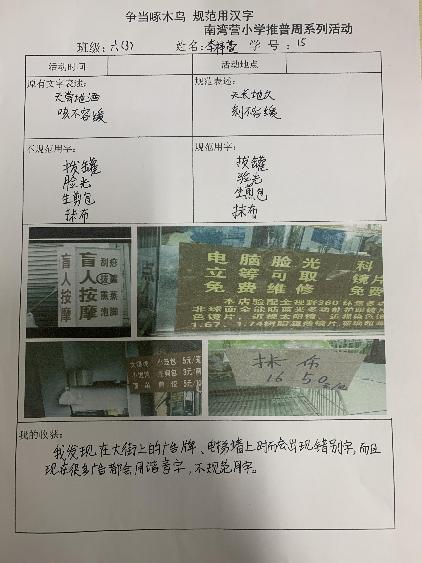 争当啄木鸟 规范用汉字
南湾营小学推普周系列活动
班级：六(3) 姓名： 学号：15
活动时间 活动地点
原有文字表述：
天尝地酒
咳不容缓
规范表述：
天长地久
刻不容缓
不规范用字：
拨罐
脸光
生剪包
抹布
规范用字：
拔罐
验光
生煎包
抹布
盲人按摩
盲人按摩
刮痧
拨罐
熏蒸
泡脚
电脑脸光
立等可取
免费维修
科
镜片
本店验配全视野360
1.67、1.74
5元
抹布
16 50
我的收获：
我发现在大街上的广告牌、电线墙上时而会出现错别字，而且
现在很多广告都会用谐音字，不规范用字。